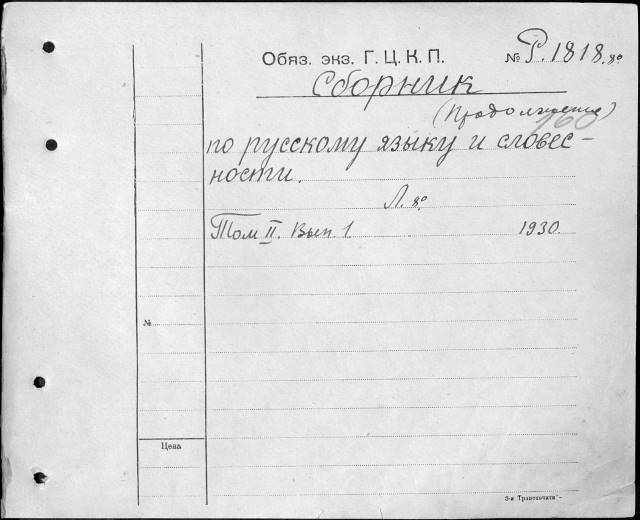 Обяз. экз. Г. Ц. К. П. № Р. 1818. 8º
Сборник
(Продолжение)
160
по русскому языку и словес-
ности.
Л. 8º
Том II. Вып 1. 1930.
№
Цена
3-я Транспечати" -